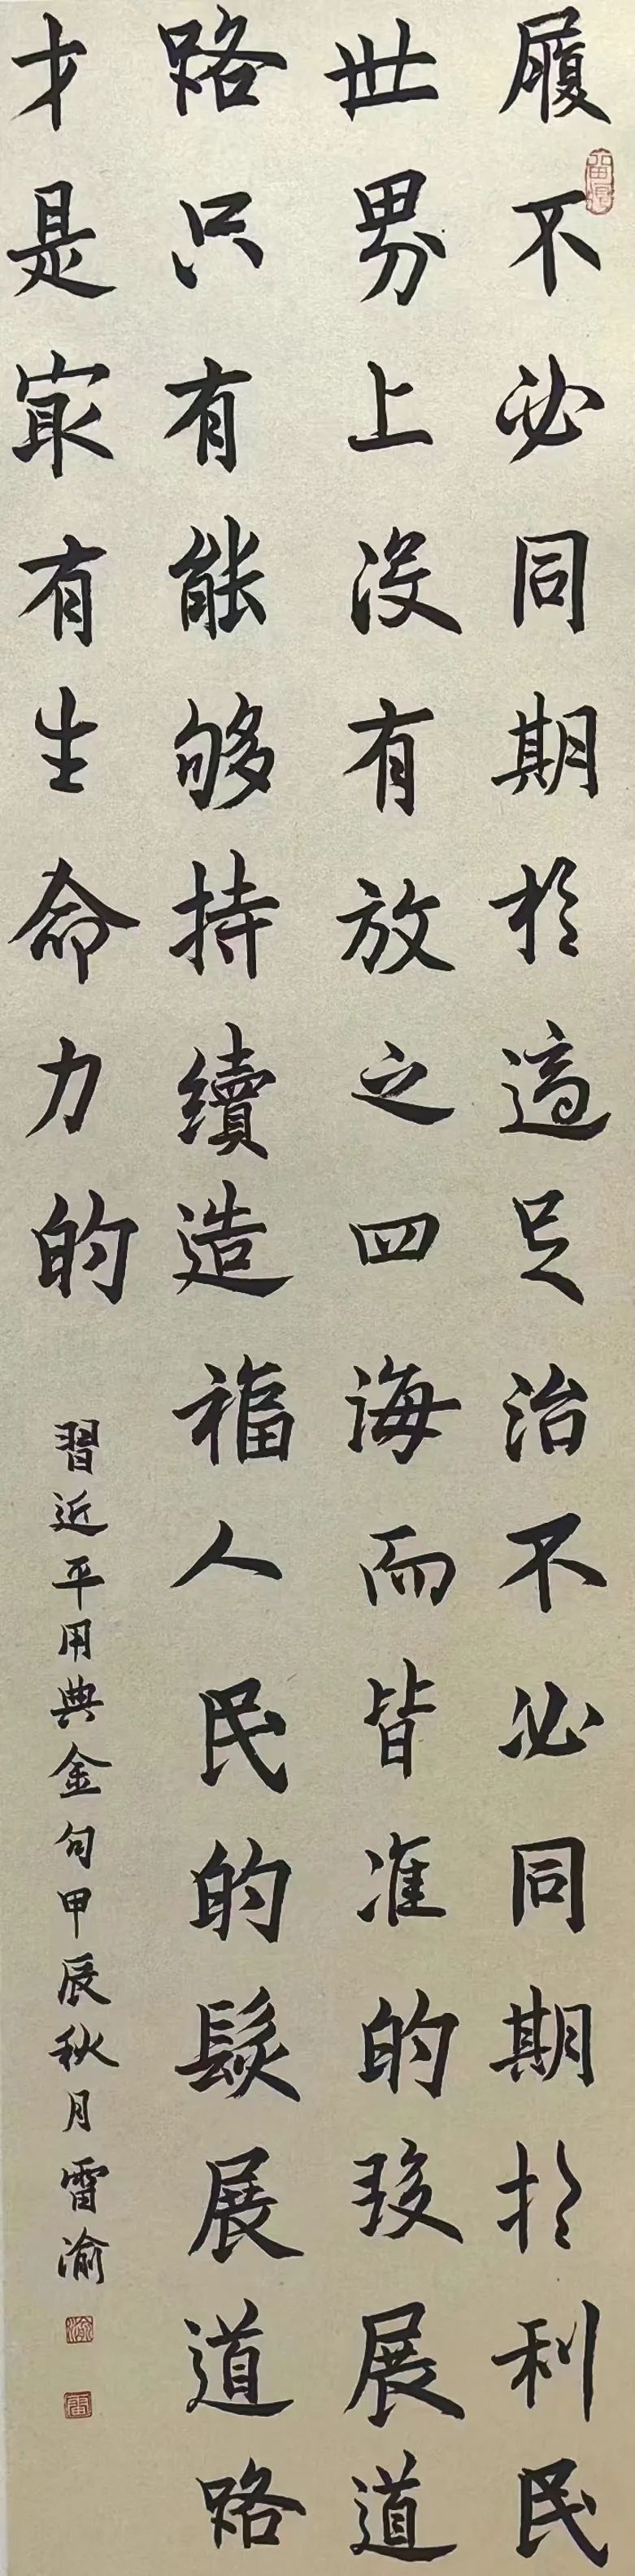 履不必同期於適足治不必同期於利民
世界上没有放之四海而皆准的發展道
路只有能够持續造福人民的髮展道路
才是最有生命力的
習近平用典金句甲辰秋月雷渝
渝
雷